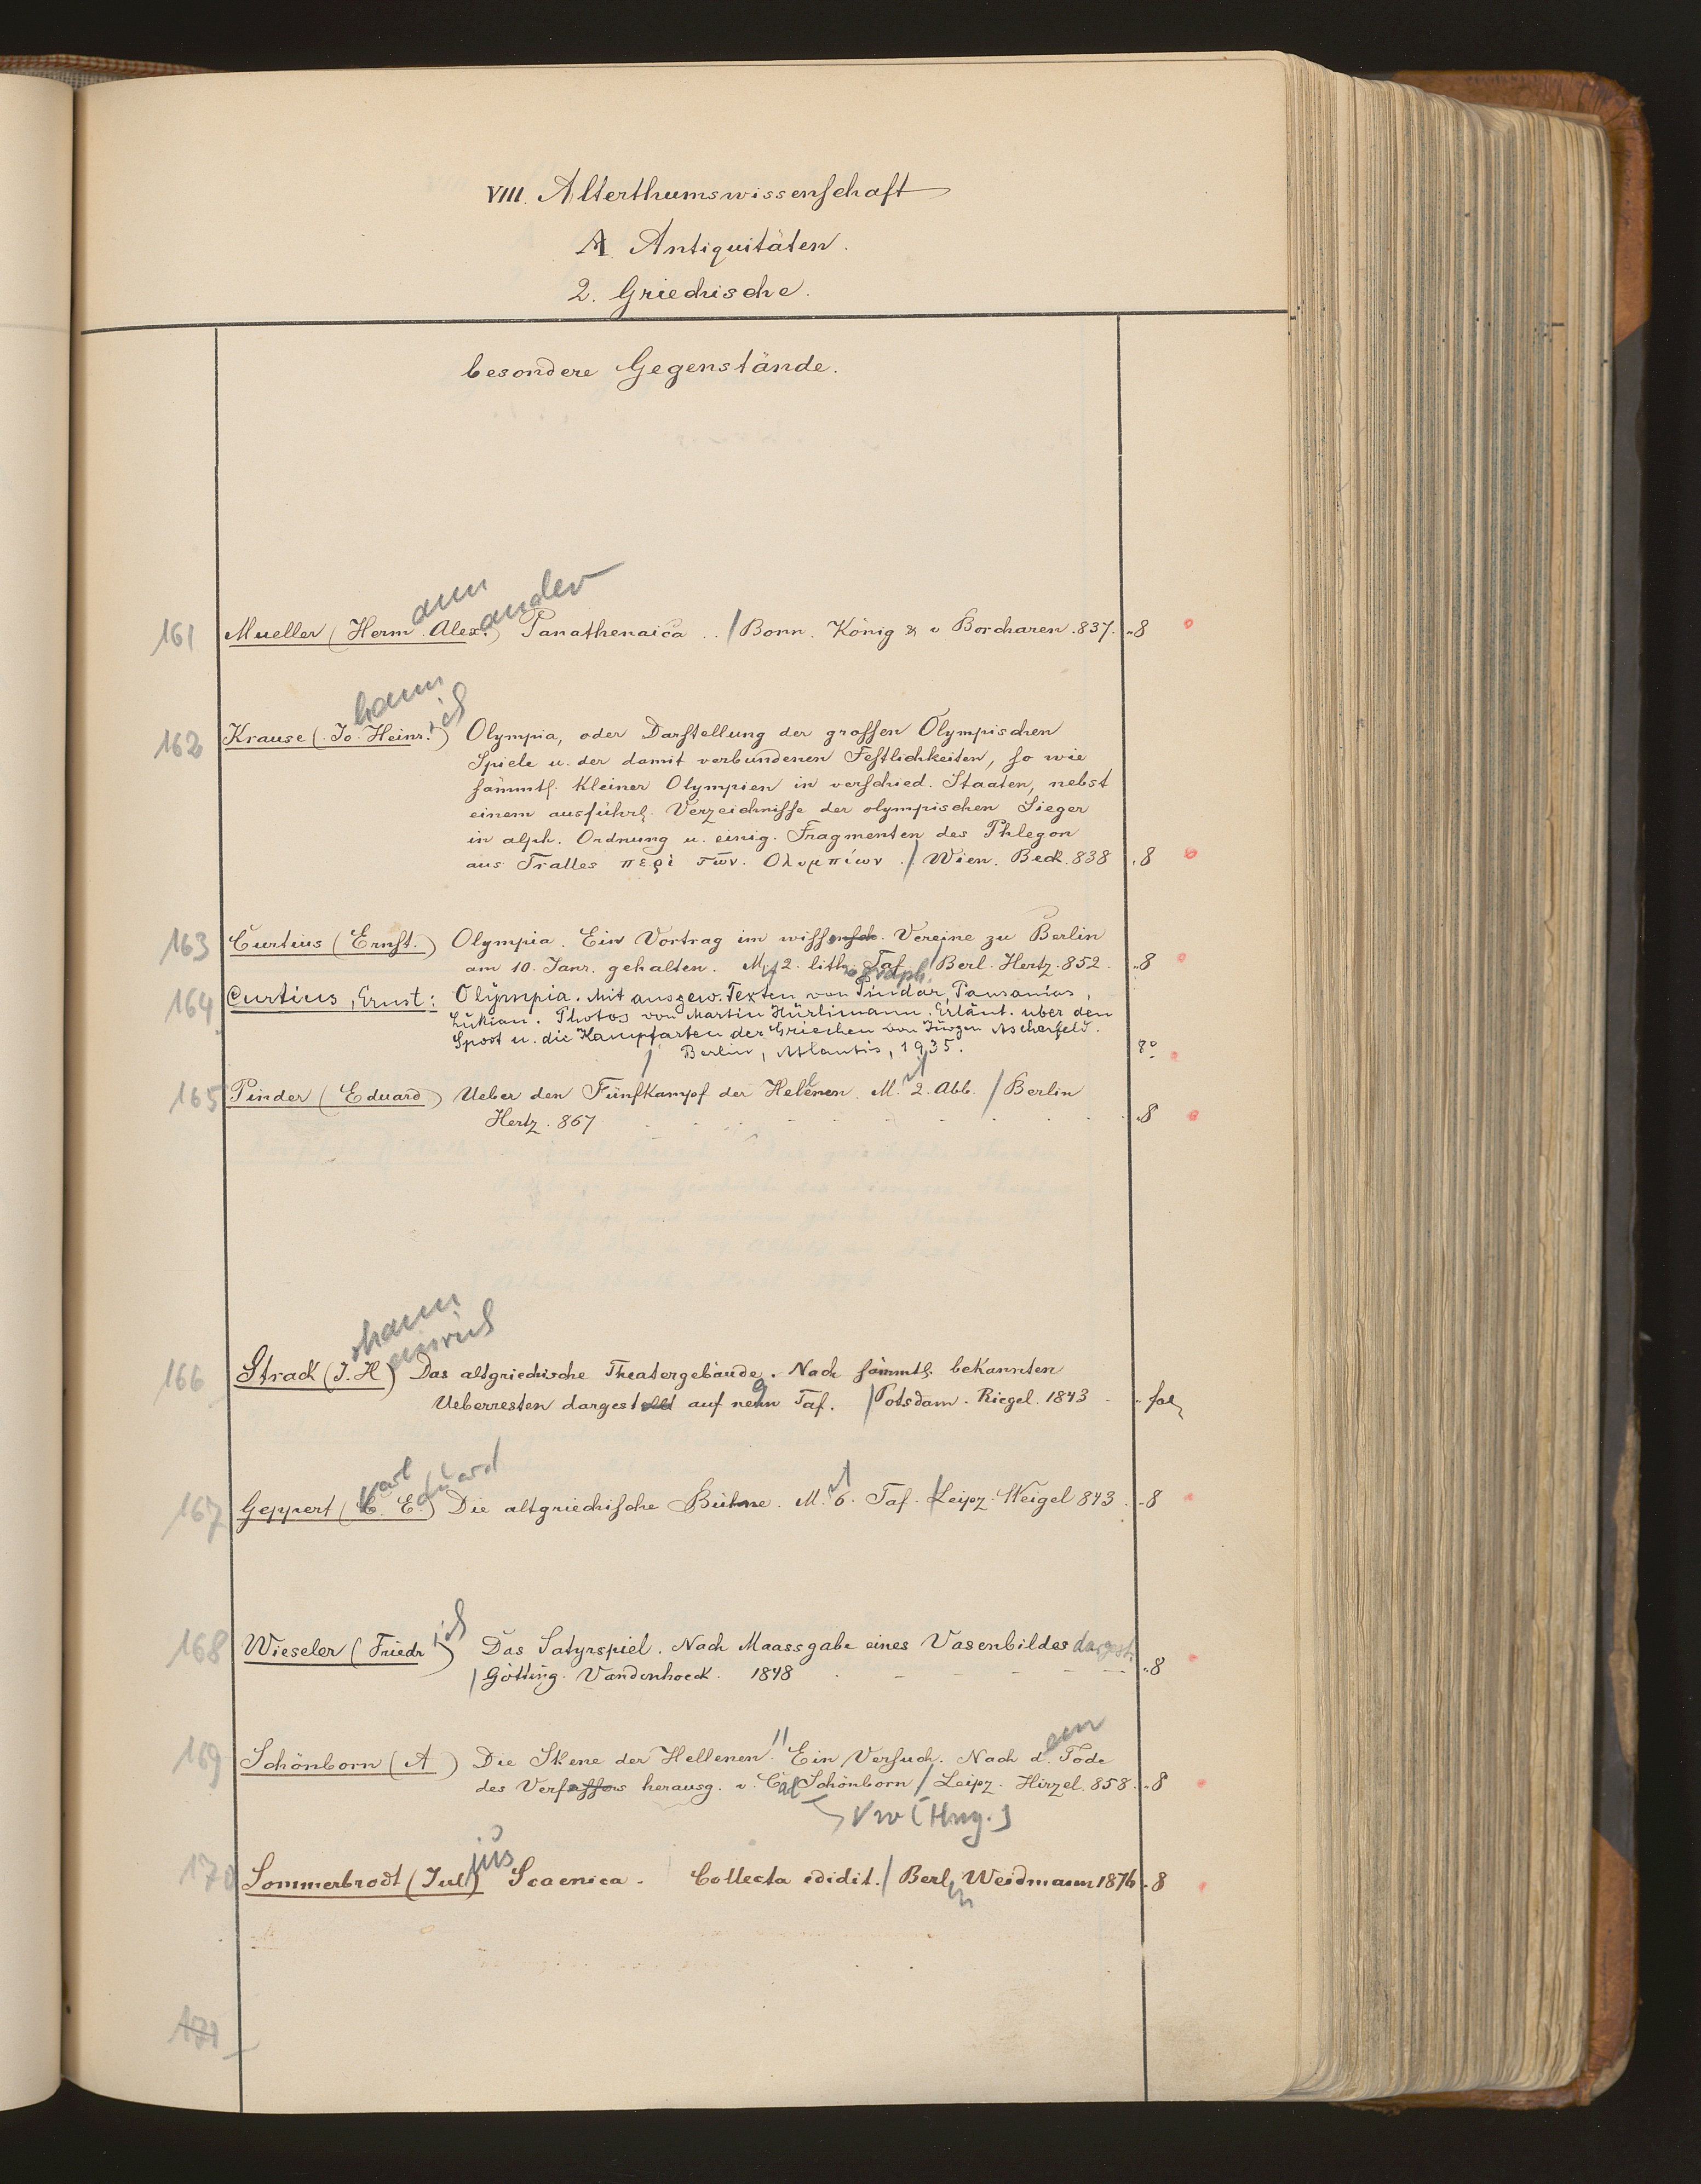 VIII. Alterthumswissenschaft
A Antiquitäten.
2. Griechische.
besondere Gegenstände.
ann ander
161 Mueller (Herm. Alex.) Panathenaica .. / Bonn. König & v Borcharen. 837. „8
hann ich
162 Krause (Jo. Heinr.) Olympia, oder Darstellung der grossen Olympischen
Spiele u. der damit verbundenen Festlichkeiten, so wie
sämmtl. kleiner Olympien in verschied. Staaten, nebst
einem ausführl. Verzeichnisse der olympischen Sieger
in alph. Ordnung u. einig. Fragmenten des Phlegon
aus Tralles περὶ τῶν Ολυμπίων. / Wien. Beck. 838 „8
163 Curtius (Ernst.) Olympia. Ein Vortrag im wissensch. Vereine zu Berlin
am 10. Janr. gehalten. Mit 2. lithograph. Taf. / Berl. Hertz. 852. „8
164 Curtius, Ernst: Olympia. Mit ausgew. Texten von Pindar, Pausanias,
Lukian. Photos von Martin Hürlimann. Erläut. über den
Spost u. die Kampfarten der Griechen von Jürgen Ascherfeld.
/ Berlin, Atlantis, 1935. 8°
165 Pinder (Eduard) Ueber den Fünfkampf der Hellenen. Mit 2. Abb. / Berlin
Hertz. 867 „8
ohann
einrich
166 Strack (J. H) Das altgriechische Theatergebäude. Nach sämmtl. bekannten
Ueberresten dargestellt auf neun 9 Taf. / Potsdam. Riegel. 1843 „ fol
Karl Eduard
167 Geppert (C. E.) Die altgriechische Bühne. Mit 6. Taf. / Leipz. Weigel 843. „8
ich
168 Wieseler (Friedr) Das Satyrspiel. Nach Maassgabe eines Vasenbildes dargest.
/ Götting. Vandenhoeck. 1848 „8
em
169 Schönborn (A) Die Skene der Hellenen." Ein Versuch. Nach d. Tode
des Verfassers herausg. v. Carl Schönborn / Leipz. Hirzel. 858. „8
Vw [Hrsg.]
jus
170 Sommerbrodt (Jul) Scaenica. Collecta edidit. / Berlin Weidmann 1876 „8
171